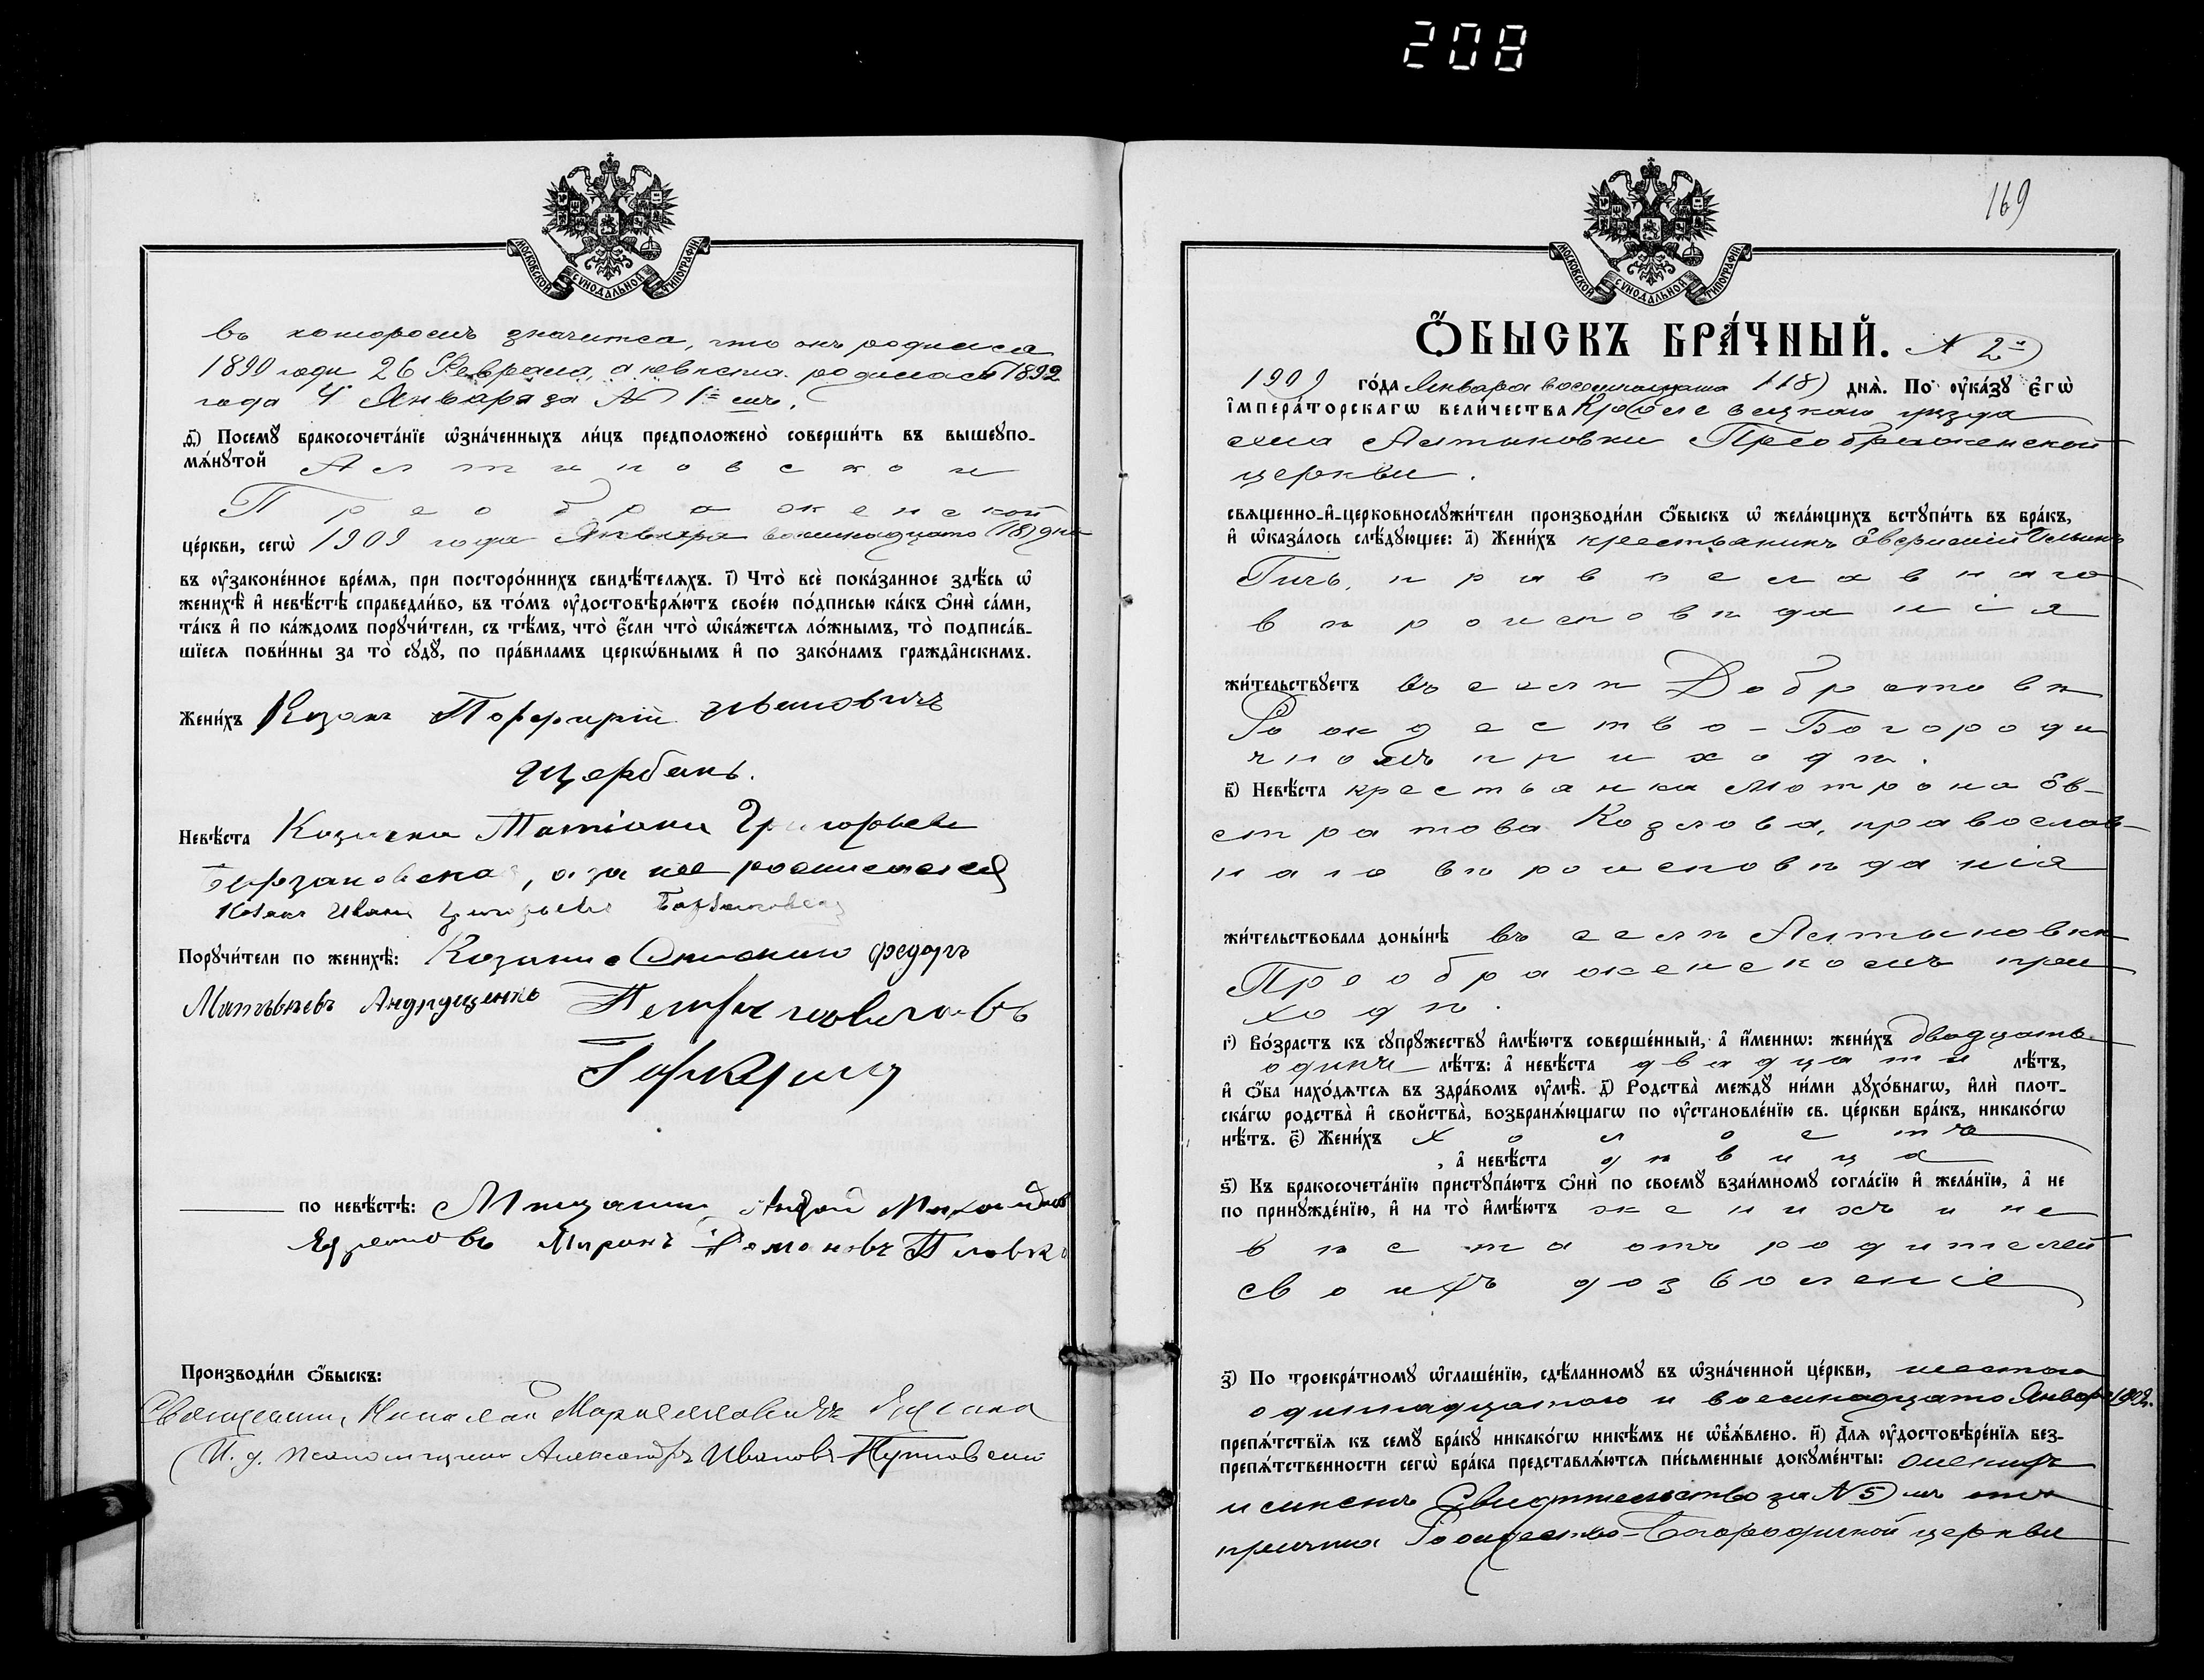 208
МОСКОВСКОЙ СѴНОДАЛЬНОЙ ТИПОГРАФІИ
въ которомъ значится, что онъ родился
1890 года 26 Февраля, а невѣста родилась 1892
года 4 Января за № 1 =
ѳ҃) Посемꙋ̀ бракосочета́нїе ѡ҆зна́ченныхъ ли́цъ предположено̀ соверши́ть въ вышеꙋпо-
мѧ́нꙋтой Алтиновской
Преображенской
це́ркви, сегѡ̀ 1909 года Января восемнадцатого (18) дня
въ ᲂу҆зако́нное вре́мѧ, при посторо́ннихъ свидѣ́телѧхъ. і҃) Что̀ всѐ пока́занное здѣ́сь ѡ҆
женихѣ̀ и҆ невѣ́стѣ справедли́во, въ то́мъ ᲂу҆достовѣрѧ́ютъ свое́ю по́дписью ка́къ ѻ҆нѝ са́ми,
та́къ и҆ по ка́ждомъ порꙋчи́тели, съ тѣ́мъ, что̀ є҆́сли что̀ ѡ҆ка́жется ло́жнымъ, то̀ подписа́в-
шїесѧ пови́нны за то̀ сꙋдꙋ̀, по пра́виламъ церко́внымъ и҆ по зако́намъ гражда́нскимъ.
Жени́хъ Козакъ Порфирій Ивановичъ
Щербань.
Невѣ́ста Козачка Татіана Григорьева
, а за нее росписался
Козакъ Иванъ
Порꙋчи́тели по женихѣ̀: Федоръ
Матвѣевъ Андрущенко
по невѣ́стѣ: Мещанин Андрей
Миронъ Романовъ
Производи́ли ѻ҆́быскъ:
Священникъ Николай
И. д. псаломщика Александръ Ивановъ
169
МОСКОВСКОЙ СѴНОДАЛЬНОЙ ТИПОГРАФІИ
Ѻ҆́БЫСКЪ БРА́ЧНЫЙ. № 2й
1909 го́да Января восемнадцатаго (18) днѧ̀. По ᲂу҆ка́зꙋ Є҆гѡ̀
і҆мпера́торскагѡ вели́чества Кролевецкаго уѣзда
села Алтыновки Преображенской
церкви.
свѧщенно-и҆-церковнослꙋжи́тели производи́ли ѻ҆́быскъ ѡ҆ жела́ющихъ встꙋпи́ть въ бра́къ,
и҆ ѡ҆каза́лось слѣ́дꙋющее: а҃) Жени́хъ крестьянинъ
православнаго
вѣроисповѣданія
жи́тельствꙋетъ въ селѣ Добротовѣ
Рождество-Богороди
чномъ приходѣ.
в҃) Невѣ́ста крестьянка Мотрона Ев-
стратова Козлова, православ-
наго вѣроисповѣданія
жи́тельствовала доны́нѣ въ селѣ Алтыновкѣ
Преображенскомъ при
ходѣ.
г҃) Во́зрастъ къ сꙋпрꙋ́жествꙋ и҆мѣ́ютъ соверше́нный, а҆ и҆́меннѡ: жени́хъ двадцать
одинъ лѣ́тъ: а҆ невѣ́ста двадцати лѣ́тъ,
и҆ ѻ҆́ба нахо́дѧтсѧ въ здра́вомъ ᲂу҆мѣ̀. д҃) Родства̀ междꙋ̀ ни́ми дꙋхо́внагѡ, и҆лѝ плот-
ска́гѡ родства̀ и҆ сво́йства, возбранѧ́ющагѡ по ᲂу҆становле́нїю св. це́ркви бра́къ, никако́гѡ
нѣ́тъ. є҃) Жени́хъ холостъ
, а҆ невѣ́ста дѣвица
ѕ҃) Къ бракосочета́нїю пристꙋпа́ютъ ѻ҆нѝ по своемꙋ̀ взаи́мномꙋ согла́сїю и҆ жела́нїю, а҆ не
по принꙋжде́нїю, и҆ на то̀ и҆мѣ́ютъ женихъ и не
вѣста отъ родителей
своихъ дозволеніе
з҃) По троекра́тномꙋ ѡ҆глаше́нїю, сдѣ́ланномꙋ въ ѡ҆зна́ченной це́ркви, шестого
одиннадцатого и восемнадцатого Января 1909г.
препѧ́тствїѧ къ семꙋ̀ бра́кꙋ никако́гѡ никѣ́мъ не ѡ҆б̾ѧ́влено. и҃) Длѧ̀ ᲂу҆достовѣре́нїѧ без-
препѧ́тственности сегѡ̀ бра́ка представлѧ́ютсѧ пи́сьменные докꙋме́нты:
Свидѣтельство за № 5 отъ
причта Рождество-Богородичной церкви